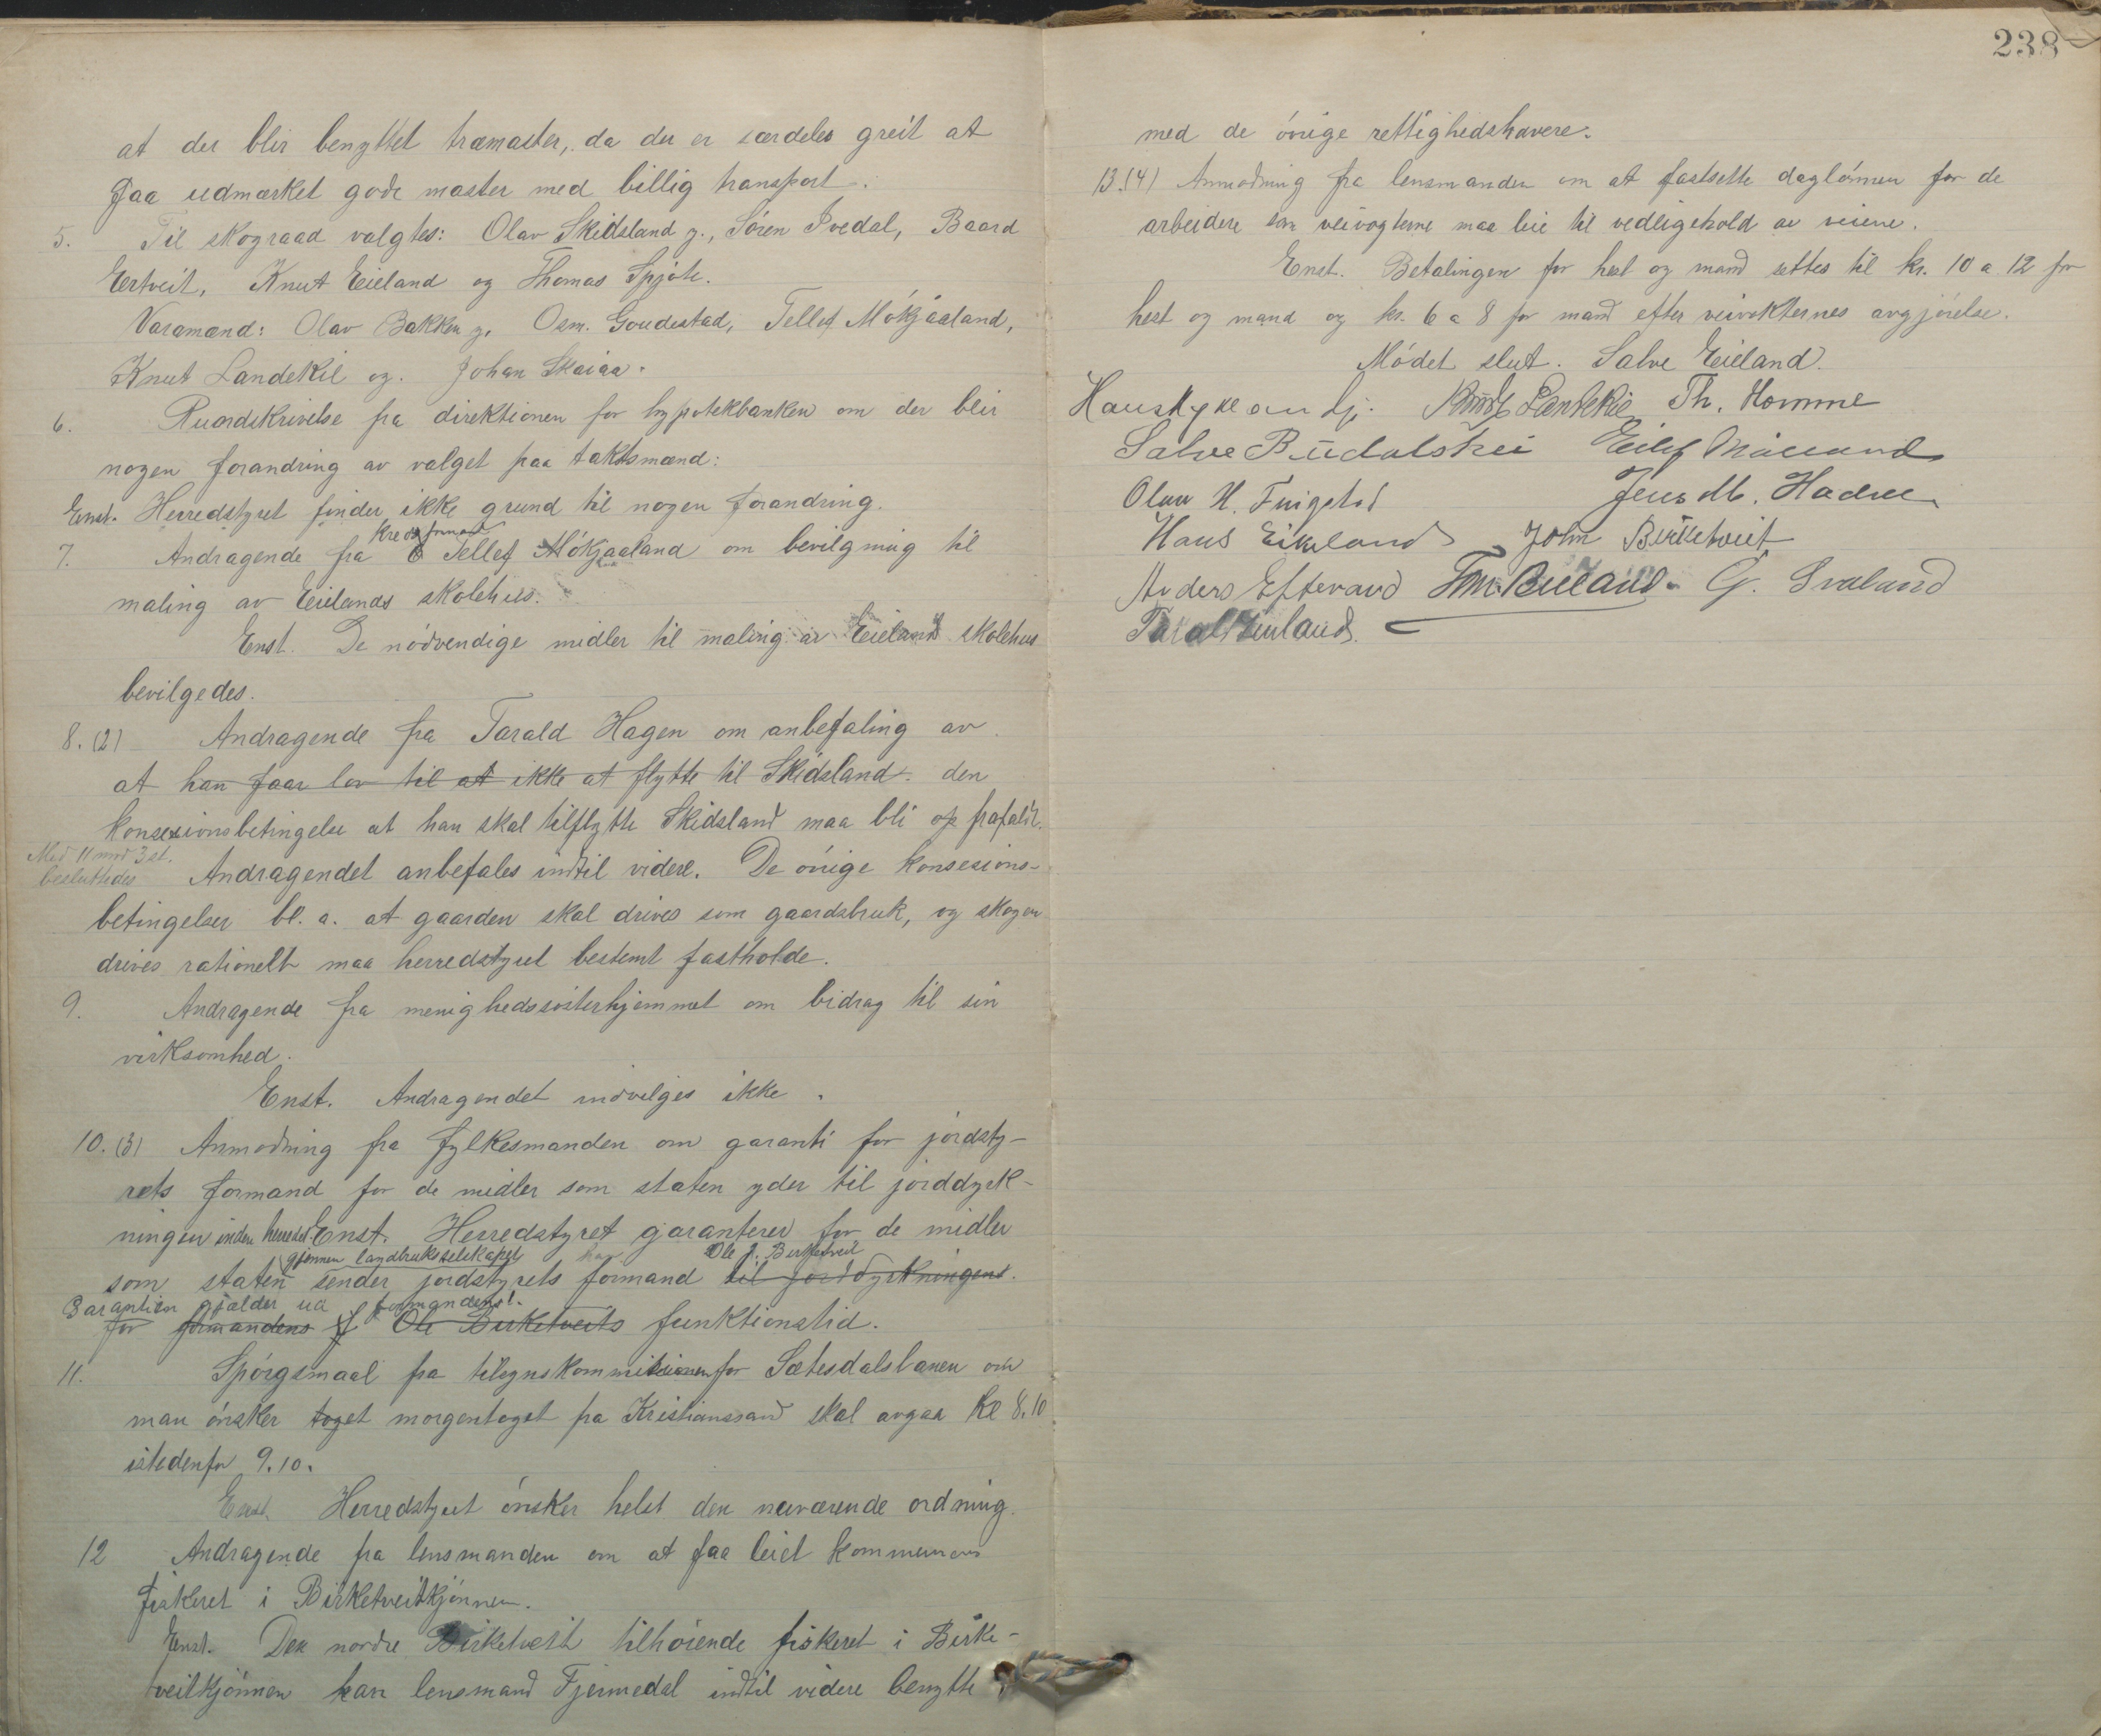 at der blir benyttet træmaster, da der er særdeles greit at
faa udmærket gode master med billig transport.
5. Til skograad valgtes: Olav Skidsland y., Søren Ivedal, Baard
Ertveit, Knut Eieland og Thomas Spjote.
Varamænd: Olav Bakken y. Osm. Goudestad, Tellef Mökjaaland,
Knut Landekil og. Johan Skaiaa.
6. Rundskrivelse fra direktionen for hypotekbanken om der blir
nogen forandring av valget paa takstmænd:
Enst. Herredstyret finder ikke grund til nogen forandring.
kredsformand
7. Andragende fra Tellef Mökjaaland om bevilgning til
maling av Eielands skolehus.
Enst. De nödvendige midler til maling av Eieland skolehus
bevilgedes.
8. (2) Andragende fra Tarald Hagen om anbefaling av
at han faar lov til at ikke at flytte til Skidsland. den
konsesionsbetingelse at han skal tilflytte Skidsland maa bli op frafaldt.
Med 11 mod 3 st.
besluttedes Andragendet anbefales indtil videre. De övrige konsesions-
betingelser bl. a. at gaarden skal drives som gaardsbruk, og skogen
drives rationelt maa herredstyret bestemt fastholde.
9. Andragende fra menighedssösterhjemmet om bidrag til sin
virksomhed.
Enst. Andragendet indvilges ikke.
10. (3) Anmodning fra fylkesmanden om garanti for jordsty-
rets formand for de midler som staten yder til jorddyrk-
ningen inden herredet. Enst. Herredstyret garanterer for de midler
gjennem landbrukselskapet Ole J. Birketveit
som staten sender jordstyrets formand til jorddyrkningens.
Garantien gjælder formandens
for formandens Ole Birketveits funktionstid.
11. Spörgsmaal fra tilsynskommisionen for Sætesdalsbanen om
man önsker toget morgentoget fra Kristianssand skal avgaa Kl 8.10
istedenfor 9.10.
Enst. Herredstyret önsker helst den nuværende ordning.
12 Andragende fra lensmanden om at faa leiet kommunens
fiskeret i Birketveitkjönnen.
Enst. Den nordre Birketveit tilhöiende fiskeret i Birke-
tveitkjönnen kan lensmand Fjermedal indtil videre benytte
238
med de övrige rettighedshavere.
13.(4) Anmodning fra lensmanden om at fastsette daglönnen for de
arbeidere som veivogterne maa leie til vedligehold av veiene.
Enst. Betalingen for hest og mand settes til kr. 10 a 12 for
hest og mand og kr. 6 a 8 for mand efter veivokternes avgjörelse.
Mödet slut. Salve Eieland.
Knut Landekil Th. Homme
Salve Büdalskei Eilef
Olav H. Jens M.
Hans Eikeland John Birketveit
Anders Eftevand Tom Bieland G. Svaland
Tarald